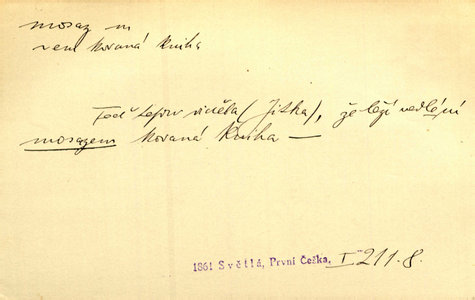 mosaz m
zem kovaná kniha
Teď teprv viděla (Jitka), že leží vedle ní
mosazem kovaná kniha —
1861 Světlá, První Češka, I 211. 8.